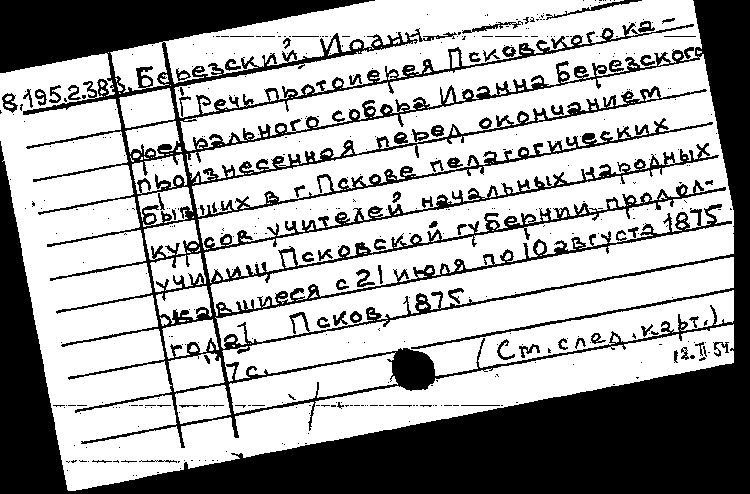 8.195.2.383. Березский, Иоанн.
[Речь протоиерея Псковского ка-
федрального собора Иоанна Березского
произнесенная перед окончанием
бывших в г. Пскове педагогических
курсов учителей начальных народных
училищ Псковской губернии, продол-
жавшиеся с 21 июля по 10 августа 1875
года]. Псков, 1875.
7 с.
(См. след. карт.).
12.II 54.